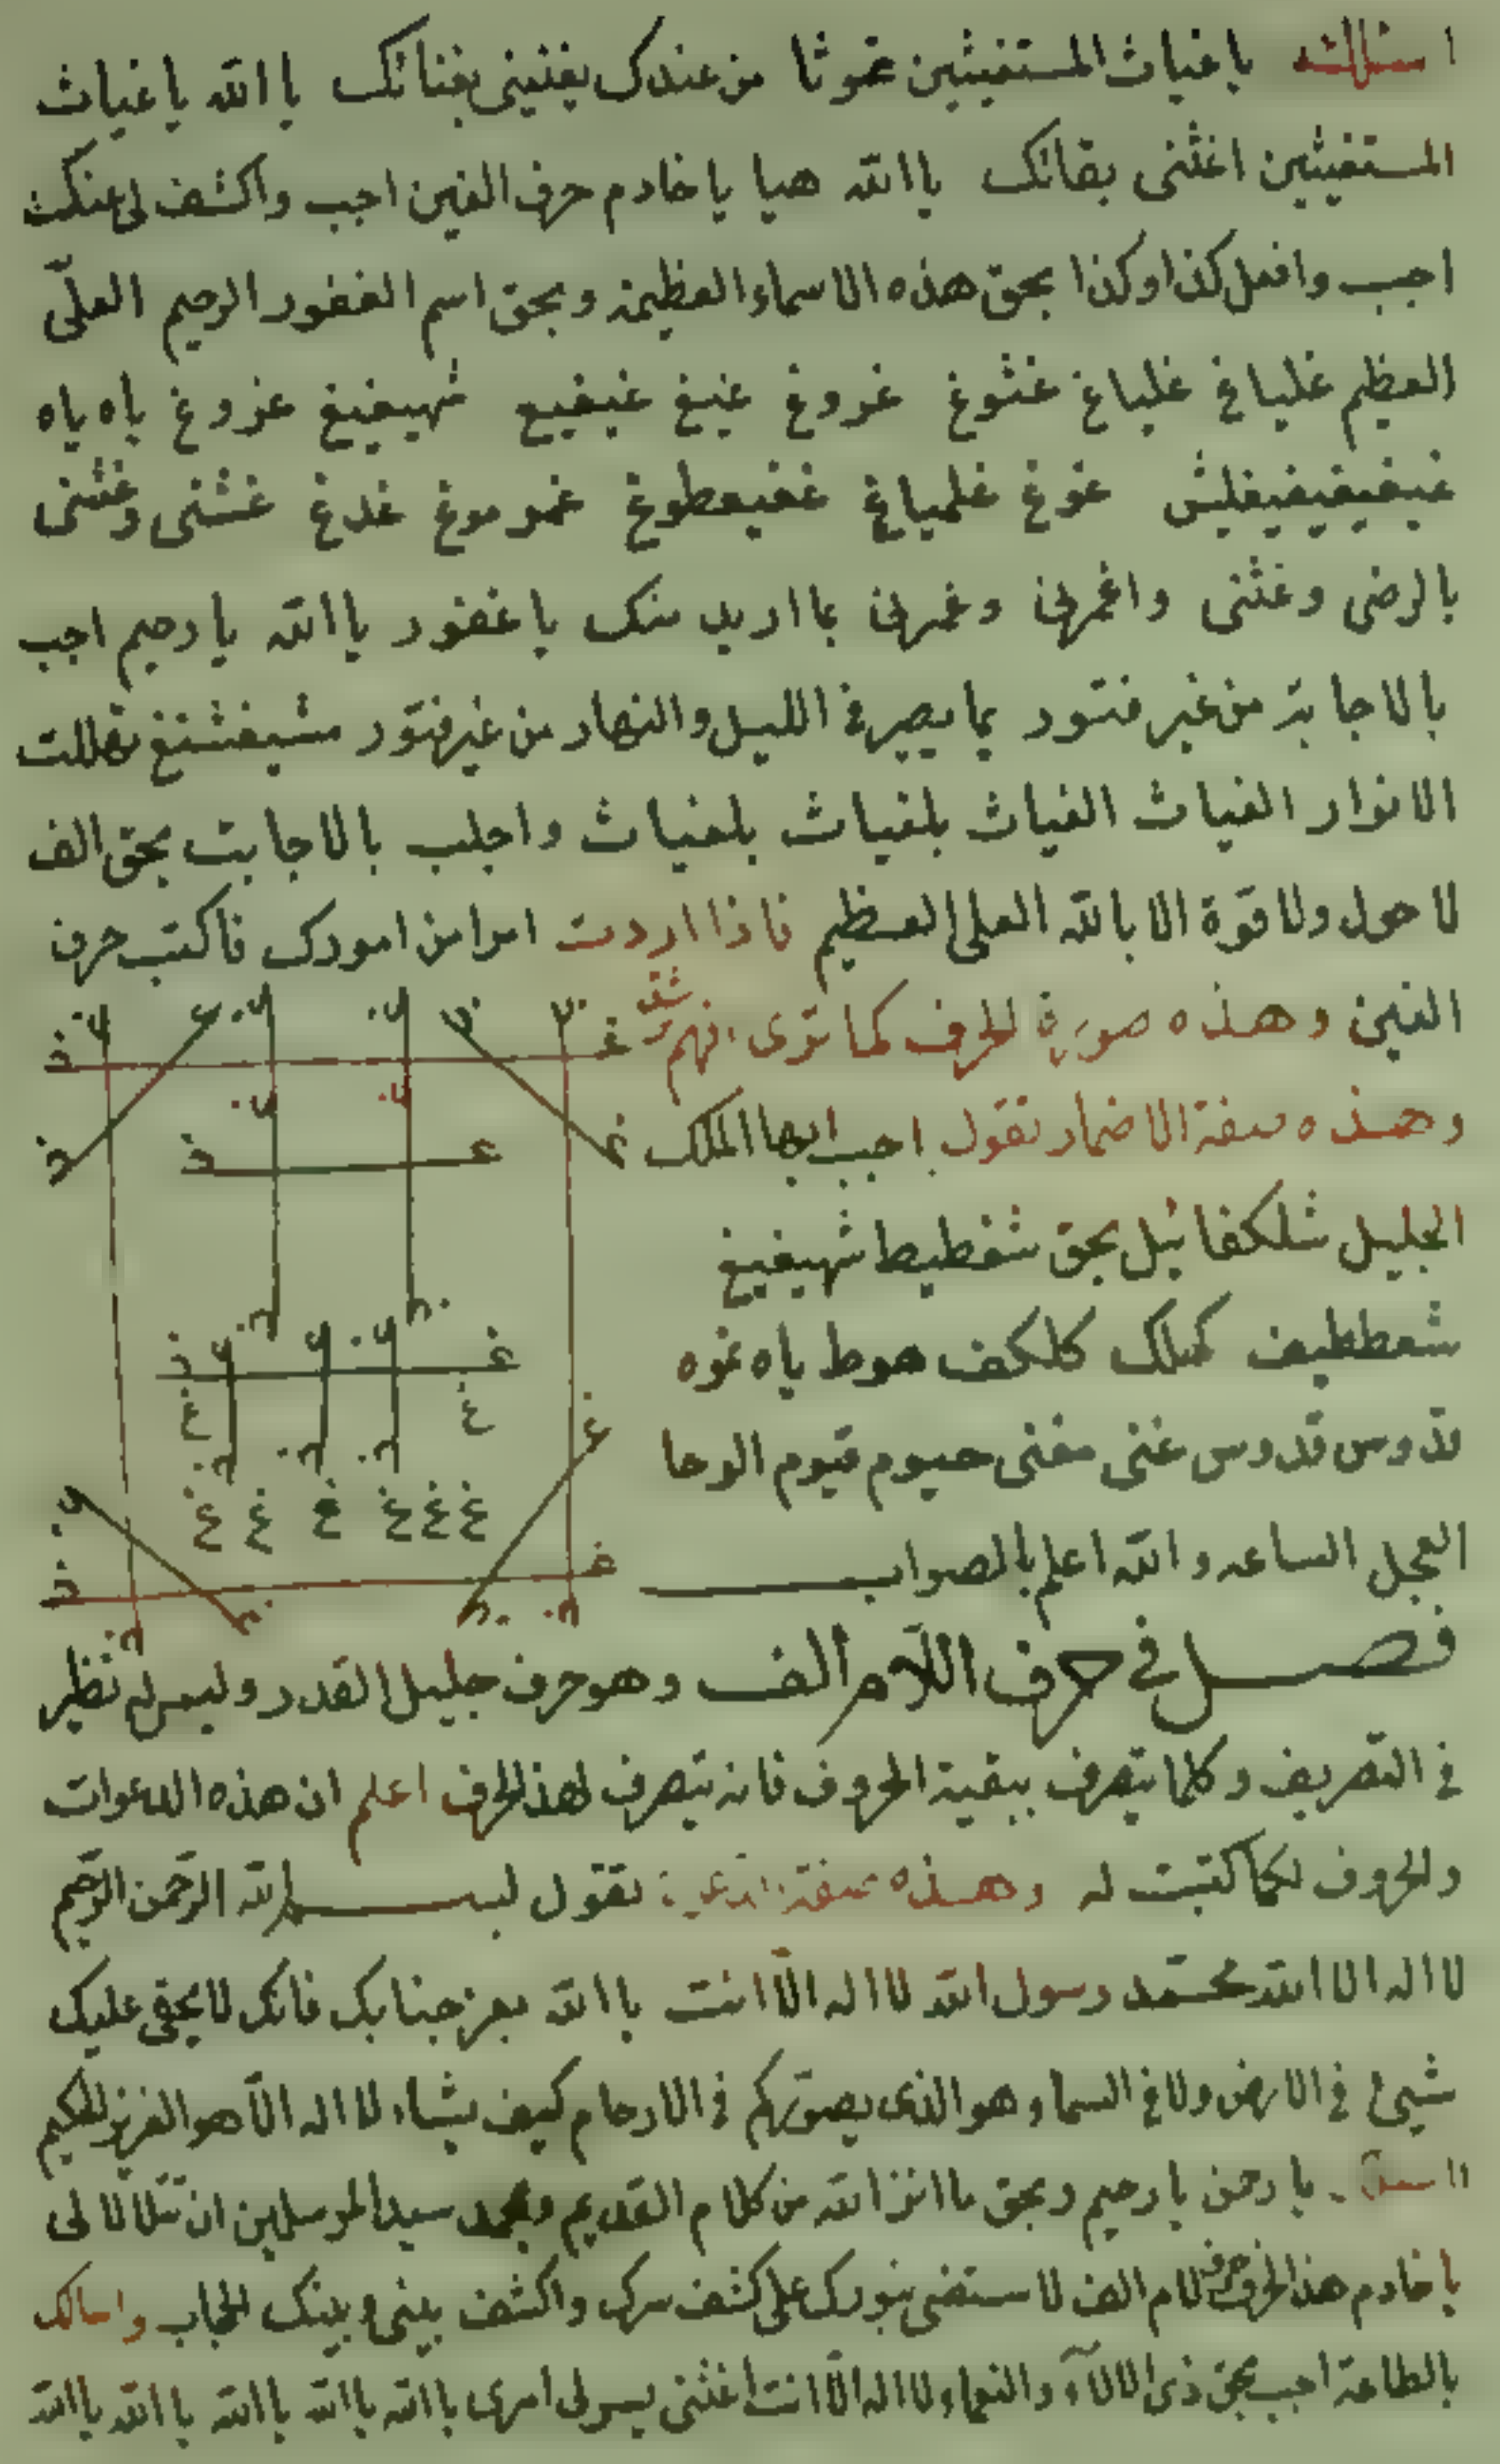 اسئلك يا غياث المستغيثين غوثا من عندك يغنينى بغنائك يا الله يا غياث
المستغيثين اغثنى بقائك يا الله هيا يا خادم حرف الغين اجب واكشف لى عنك
اجب وافعل كذا وكذا بحق هذه الاسماء العظيمة وبحق اسم الغفور الرحيم العلّى
العظيم غلياغ غلياغ غثوغ غروغ غيغ غيغيع شهيغيغ غروغ ياه ياه
غوغ غلمياغ غفيعطوغ غموموغ غدغ غثنى وغثنى
بالرضى وغثنى واغمرنى وغمرنى بما اريد منك يا غفور يا الله يا رحيم اجب
بالاجابة من غير فتور بما يصير فى الليل والنهار من غير فتور تهللت
الانوار الغياث الغياث بلغياث بلغياث واجلب بالاجابت بحق الف
لا حول ولا قوة الا بالله العلى العظيم فاذا اردت امرا من امورك فاكتب حرف
الغين وهذه صورة الحرف كما ترى افهم ترشد
وهذه صفة الاضمار تقول اجب ايها الملك
الجليل شلكفائيل بحق شغطيط شهيغيغ
شعططيف كمهلك كلكف هوط ياه غوه
قدوس قدوس غنى مغنى حيوم قيوم الوحا
العجل الساعه والله اعلم بالصواب
غ غ غ غ غ غ
فصل فى حرف اللام الف وهو حرف جليل القدر وليس له نظير
فى التصريف وكلما يتصرف ببقية الحروف فانه يتصرف لهذ الحرف اعلم ان هذه الدعوات
والحروف لكما كتبت له وهذه صفة الدعوة تقول بسم الله الرحمن الرحيم
لا اله الا الله محمد رسول الله لا اله الّا انت يا الله بعز جنابك فانك لا يخفى عليك
شيئ فى الارض ولا فى السماء وهو الذى يصوّركم فى الارحام كيف يشاء لا اله الّا هو العزيز الحكيم
يا رحمن يا رحيم وبحق ما انز الله من كلام القديم وبمحمد سيد المرسلين ان تتلالا لى
يا خادم هذ الحرف حرف لام الف لاستضى بنورك على كشف سرك واكشف بينى وبينك الحجاب واسالك
بالطاعة اجب بحق ذى الالآء والنعماء لا اله الّا انت اغثنى يسر لى امرى يا الله يا الله يا الله يا الله يا الله